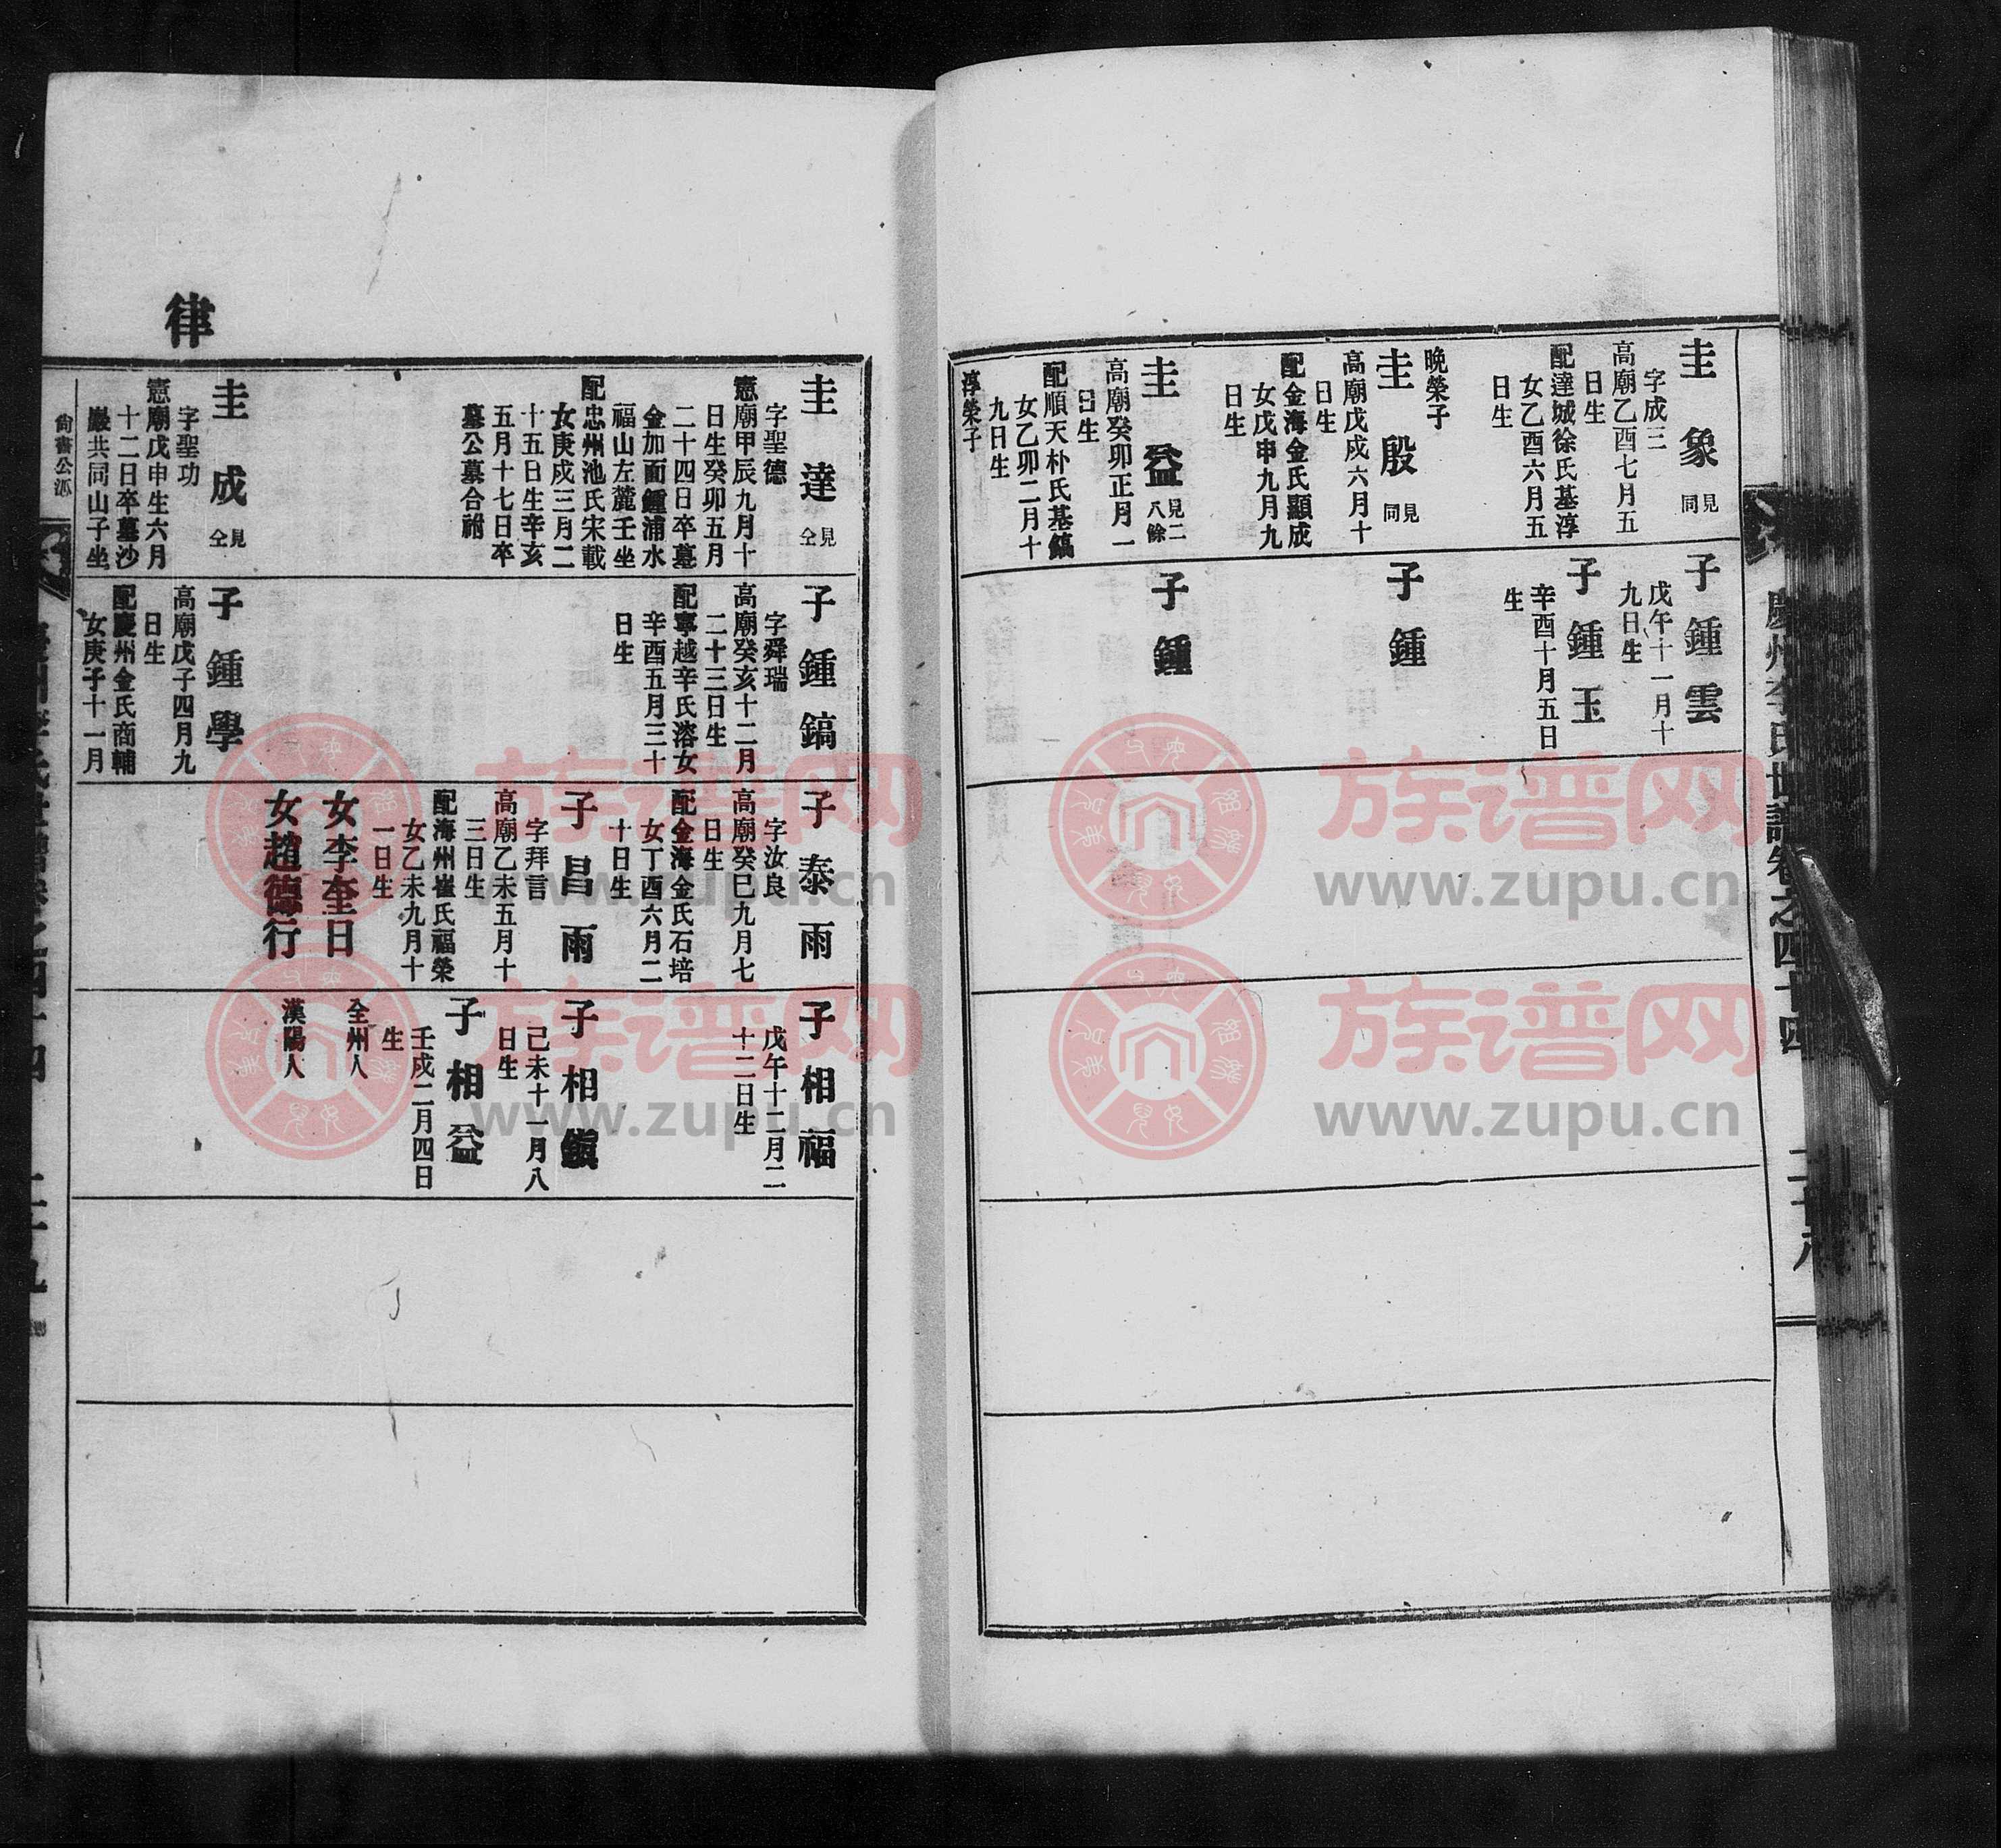 慶州李氏世譜卷之四十四
二十八
圭象
見同
字成三
高廟乙酉七月五
日生
配達城徐氏基淳
女乙酉六月五
日生
晩榮子
圭殷
見同
高廟戊戌六月十
日生
配金海金氏顯成
女戊申九月九
日生
圭益
見二八餘
高廟癸卯正月一
日生
配順天朴氏基鎬
女乙卯二月十
九日生
淳榮子
子鍾雲
戊午十一月十
九日生
子鍾玉
辛酉十月五日
生
子鍾
子鍾
律
圭達
見仝
字聖德
憲廟甲辰九月十
日生癸卯五月
二十四日卒墓
金加面鍾浦水
福山左麓壬坐
配忠州池氏宋載
女庚戌三月二
十五日生辛亥
五月十七日卒
墓公墓合祔
圭成
見仝
字聖功
憲廟戊申生六月
十二日卒墓沙
巖共同山子坐
子鍾鎬
字舜瑞
高廟癸亥十二月
二十三日生
配寧越辛氏溶女
辛酉五月三十
日生
子鍾學
高廟戊子四月九
日生
配慶州金氏商輔
女庚子十一月
子泰雨
字汝良
高廟癸巳九月七
日生
配金海金氏石培
女丁酉六月二
十日生
子昌雨
字拜言
高廟乙未五月十
三日生
配海州崔氏福榮
女乙未九月十
一日生
女李奎日
女趙德行
子相福
戊午十二月二
十二日生
子相鎭
己未十一月八
日生
子相益
壬戌二月四日
生
全州人
漢陽人
尙書公派
族谱网
www.zupu.cn
族谱网
www.zupu.cn
族谱网
www.zupu.cn
族谱网
www.zupu.cn